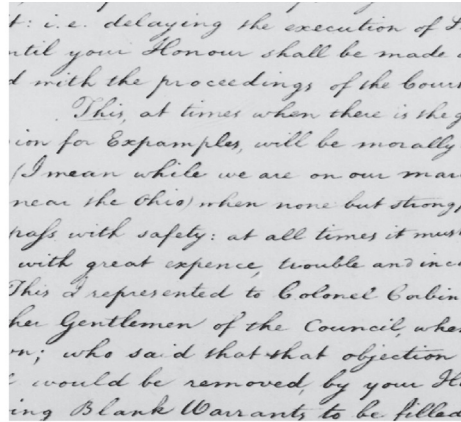 t: i.e. delaying the execution of
ntil your Honour shall be made
d with the proceedings of the Cour
This, at times when there is the g
ion for Expamples, will be morally
(I mean while we are on our mar
near the Ohio) when none but strong
pass with safety: at all times it mus
with great expence, trouble and inc
This I represented to Colonel Corbin
her Gentlemen of the Council, when
n; who said that that objection
would be removed, by your H
ing Blank Warrants to be filled